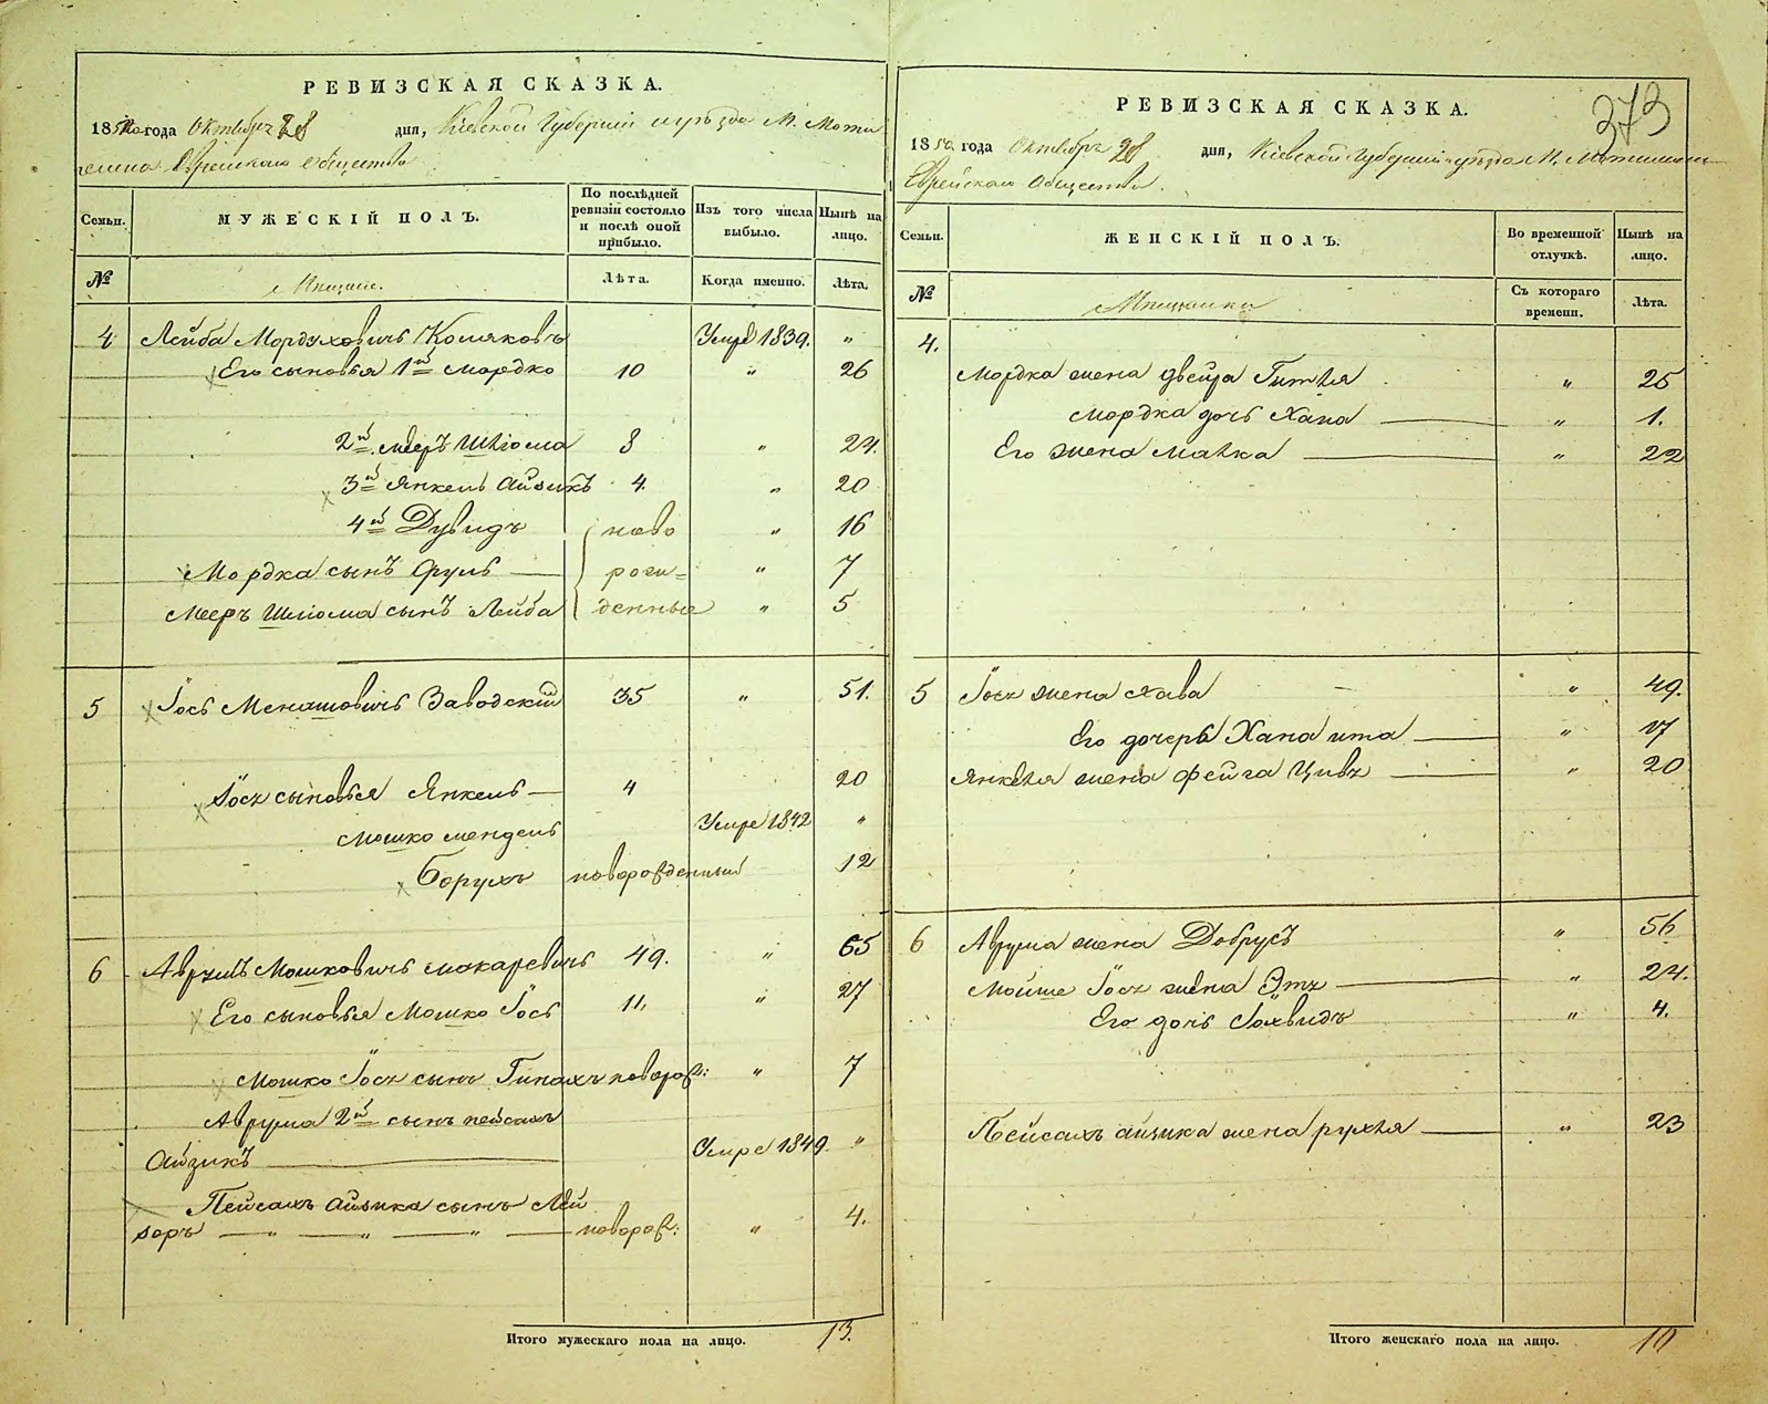 РЕВИЗСКАЯ СКАЗКА.
1850 года Октября 28 дня, Кіевской Губерніи и уѣзда М. Моти
желина Еврейскаго общества
Семьи. МУЖЕСКІЙ ПОЛЪ. По послѣдней ревизіи состояло и послѣ оной прибыло. Изъ того числа выбыло. Нынѣ на лицо.
№ Мещане. Лѣта. Когда именно. Лѣта.
4 Лейба Мордуховичъ Умре 1839. "
Его сыновья 1й Мордко 10 " 26
2й Мееръ Шліома 8 " 24.
3й Янкель Айзикъ 4. " 20
4й Дувидъ ново " 16
Мордка сынъ Сруль рож= " 7
Мееръ Шліома сынъ Лейба денные " 5
5 Іось Менашовичъ Заводскій 35 " 51.
Іося сыновья Янкель 4 20
Мошко Мендель Умре 1842 "
Борухъ новорожденный 12
6 Аврумъ Мошковичъ Макаревичъ 49. " 65
Его сыновья Мошко Іось 11. " 27
Мошко Іося сынъ новорож: " 7
Аврума 2й сынъ Пейсахъ
Айзикъ Умре 1849. "
Пейсахъ Айзика сынъ Лей
зоръ — " — " — " — новорож: " 4.
Итого мужескаго пола на лицо. 13.
373
РЕВИЗСКАЯ СКАЗКА.
1850 года Октября 28 дня, Кіевской Губерніи и уѣзда М. Мотижелина
Еврейскаго Общества.
Семьи. ЖЕНСКІЙ ПОЛЪ. Во временной отлучкѣ. Нынѣ на лицо.
№ Мещанки Съ котораго времени. Лѣта.
4.
Мордка жена Двейра Гитля " 25
Мордка дочь Хана " 1.
Его жена Малка " 22
5 Іося жена Хава " 49.
Его дочерь Хана Ита " 17
Янкеля жена Фейга Цивя " 20
6 Аврума жена Добрусъ " 56
Мойше Іося жена Этя " 24.
Его дочь Іохвидъ " 4.
Пейсахъ Айзика жена Рухля " 23
Итого женскаго пола на лицо. 10